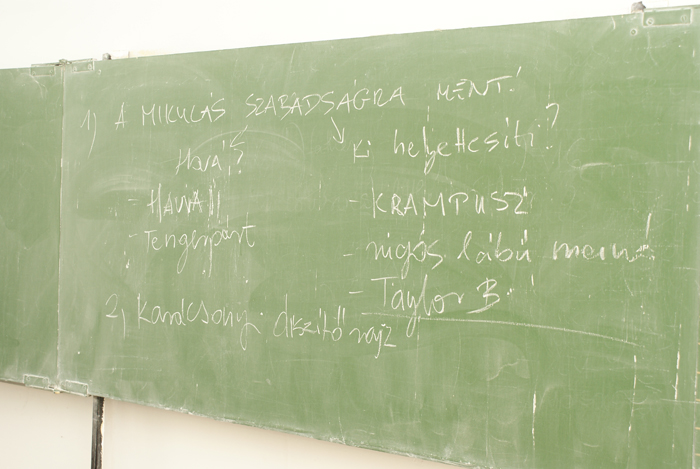 1) A MIKULÁS SZABADSÁGRA MENT!
Hová?
- HAWAII
- Tengerpart
ki helyettesíti?
- KRAMPUSZ
- lábú
- Taylor B.
2, Karácsonyi díszítő rajz